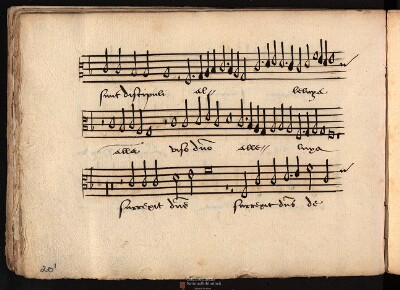 sunt discipuli al- leluya
alla viso dno alle- luya
surrexit dns surrexit dns de
20'